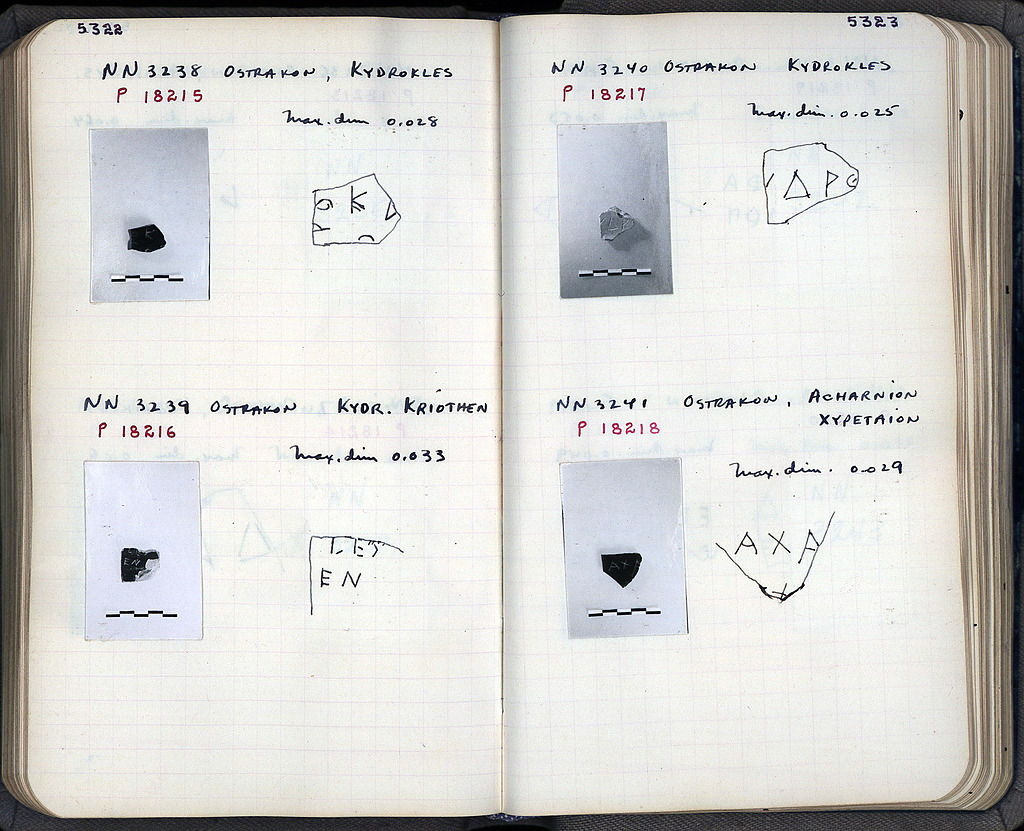 5322
NN 3238 OSTRAKON, KYDROKLES
P 18215
Max. dim 0.028
K
NN 3239 OSTRAKON KYDR. KRIOTHEN
P 18216
Max. dim 0.033
EN
5323
NN 3240 OSTRAKON KYDROKLES
P 18217
Max. dim. 0.025
Δ Ρ Ο
NN 3241 OSTRAKON, ACHARNION
XYPETAION
P 18218
Max. dim. 0.029
Α Χ Α